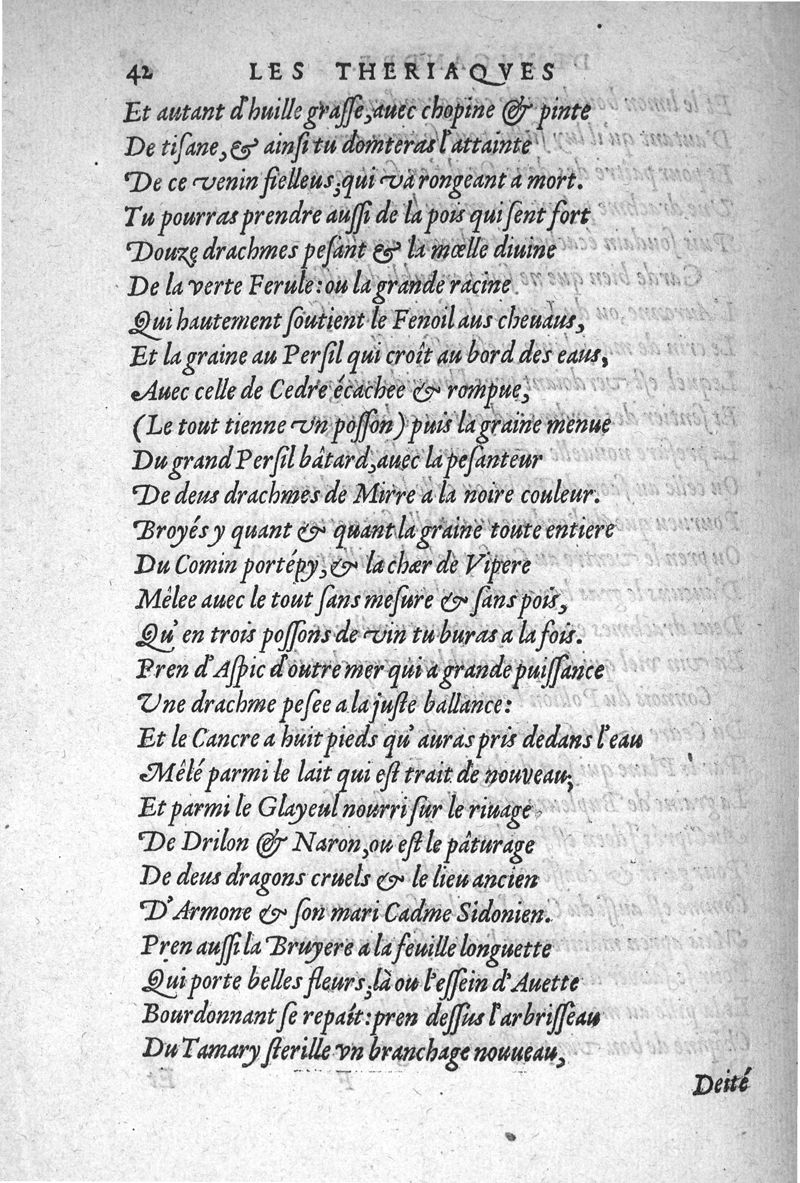 42 LES THERIAQVES
Et autant d'huille graſſe, auec chopine & pinte
De tiſane, & ainſi tu domteras l'attainte
De ce venin fielleus, qui và rongeant a mort.
Tu pourras prendre auſſi de la pois qui ſent fort
Douze drachmes peſant & la mœlle diuine
De la verte Ferule: ou la grande racine
Qui hautement ſoutient le Fenoil aus cheuaus,
Et la graine au Perſil qui croît au bord des eaus,
Auec celle de Cedre écachee & rompue,
(Le tout tienne vn poſſon) puis la graine menue
Du grand Perſil bâtard, auec la peſanteur
De deus drachmes de Mirre a la noire couleur.
Broyés y quant & quant la graine toute entiere
Du Comin portépy, & la chær de Vipere
Mêlee auec le tout ſans meſure & ſans pois,
Qu' en trois poſſons de vin tu buras a la fois.
Pren d'Aſpic d'outre mer qui a grande puiſſance
Vne drachme peſee a la juſte ballance:
Et le Cancre a huit pieds qu' auras pris dedans l'eau
Mêlé parmi le lait qui eſt trait de nouveau,
Et parmi le Glayeul nourri ſur le riuage
De Drilon & Naron, ou eſt le pâturage
De deus dragons cruels & le lieu ancien
D'Armone & ſon mari Cadme Sidonien.
Pren auſſi la Bruyere a la feuille longuette
Qui porte belles fleurs, là ou l'eſſein d'Auette
Bourdonnant ſe repaît: pren deſſus l'arbriſſeau
Du Tamary ſterille vn branchage nouueau,
Deité